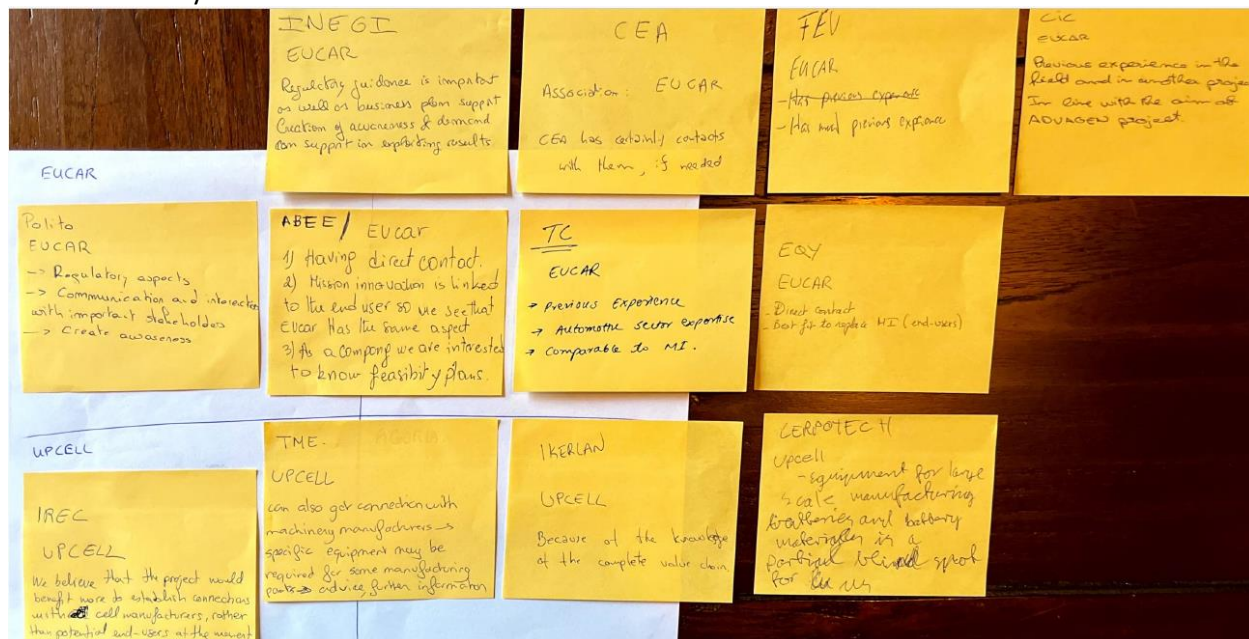 INEGI
EUCAR
Regulatory guidance is important
as well as business plan support
Creation of awareness & demand
can support in exploiting results.
CEA
Association: EUCAR
CEA has certainly contacts
with them, if needed
FEV
EUCAR
- Has previous experience
- Has most previous experience
CIC
EUCAR
Previous experience in the
field and in another project
In line with the aim of
ADVAGEN project.
EUCAR
Polito
EUCAR
-> Regulatory aspects
-> Communication and interaction
with important stakeholders
-> Create awareness
ABEE/ Eucar
1) Having direct contact.
2) Mission innovation is linked
to the end user so we see that
Eucar Has the same aspect
3) As a company we are interested
to know feasibility plans.
TC
EUCAR
→ Previous Experience
→ Automotive sector expertise
→ Comparable to MI.
EQY
EUCAR
- Direct contact
- Best fit to replace MI (end-users)
UPCELL
IREC
UPCELL
We believe that the project would
benefit more to establish connections
with cell manufacturers, rather
than potential end-users at the moment
TME.
UPCELL
can also get connection with
machinery manufacturers →
specific equipment may be
required for some manufacturing
parts → advice, further information
IKERLAN
UPCELL
Because of the knowledge
of the complete value chain
CERPOTECH
Upcell
- equipment for large
scale manufacturing
batteries and battery
materials is a
partial blind spot
for us